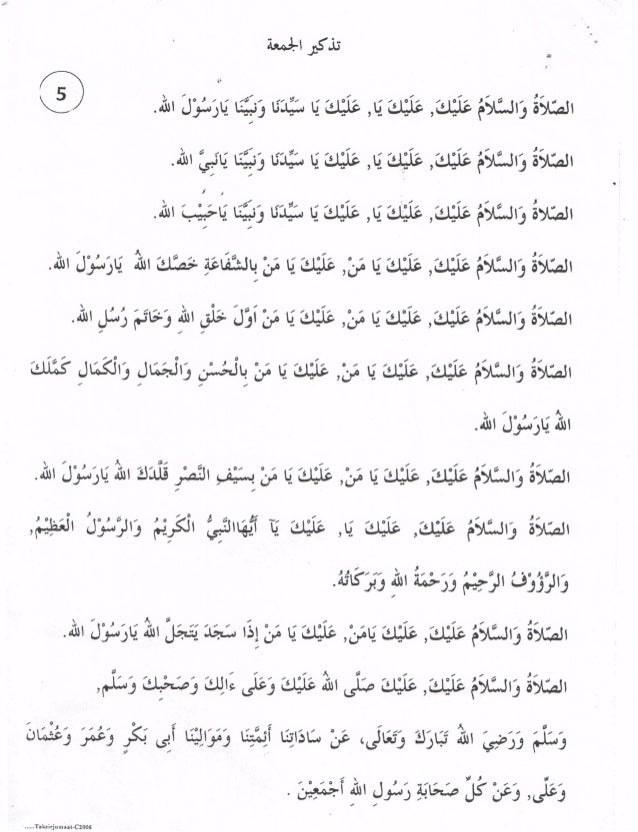 تذكير الجمعة
5
الصَّلاَةُ وَالسَّلاَمُ عَلَيْكَ, عَلَيْكَ يَا, عَلَيْكَ يَا سَيِّدَنَا وَنَبِيَّنَا يَارَسُوْلَ الله.
الصَّلاَةُ وَالسَّلاَمُ عَلَيْكَ, عَلَيْكَ يَا, عَلَيْكَ يَا سَيِّدَنَا وَنَبِيَّنَا يَانَبِيَّ الله.
الصَّلاةُ وَالسَّلاَمُ عَلَيْكَ, عَلَيْكَ يَا, عَلَيْكَ يَا سَيِّدَنَا وَنَبِيَّنَا يَاحَبِيْبَ الله.
الصَّلاَةُ وَالسَّلاَمُ عَلَيْكَ, عَلَيْكَ يَا مَنْ, عَلَيْكَ يَا مَنْ بِالشَّفَاعَةِ خَصَّكَ اللهُ يَارَسُوْلَ الله.
الصَّلاَةُ وَالسَّلاَمُ عَلَيْكَ, عَلَيْكَ يَا مَنْ, عَلَيْكَ يَا مَنْ اَوَّلَ خَلْقِ اللهِ وَخَاتَمَ رُسُلِ الله.
الصَّلاَةُ وَالسَّلاَمُ عَلَيْكَ, عَلَيْكَ يَا مَنْ, عَلَيْكَ يَا مَنْ بِالْحُسْنِ وَالْجَمَالِ وَالْكَمَالِ كَمَّلَكَ
اللهُ يَارَسُوْلَ الله.
الصَّلاَةُ وَالسَّلاَمُ عَلَيْكَ, عَلَيْكَ يَا مَنْ, عَلَيْكَ يَا مَنْ بِسَيْفِ النَّصْرِ قَلَّدَكَ اللهُ يَارَسُوْلَ الله.
الصَّلاَةُ وَالسَّلاَمُ عَلَيْكَ, عَلَيْكَ يَا, عَلَيْكَ يَآ أَيُّهَاالنَّبِيُّ الْكَرِيْمُ وَالرَّسُوْلُ الْعَظِيْمُ,
وَالرَّؤُوْفُ الرَّحِيْمُ وَرَحْمَةُ اللهِ وَبَرَكَاتُهُ.
الصَّلاَةُ وَالسَّلاَمُ عَلَيْكَ, عَلَيْكَ يَامَنْ, عَلَيْكَ يَا مَنْ إِذَا سَجَدَ يَتَجَلَّ اللهُ يَارَسُوْلَ الله.
الصَّلاَةُ وَالسَّلاَمُ عَلَيْكَ, عَلَيْكَ صَلَّى اللهُ عَلَيْكَ وَعَلَى ءَالِكَ وَصَحْبِكَ وَسَلَّم,
وَسَلَّمَ وَرَضِيَ اللهُ تَبَارَكَ وَتَعَالَى، عَنْ سَادَاتِنَا أَئِمَّتِنَا وَمَوَالِيْنَا أَبِى بَكْرٍ وَعُمَرَ وَعُثْمَانَ
وَعَلَّى, وَعَنْ كُلِّ صَحَابَةِ رَسُولِ اللهِ أَجْمَعِيْنَ .
.....Takzirjumaat-C2906